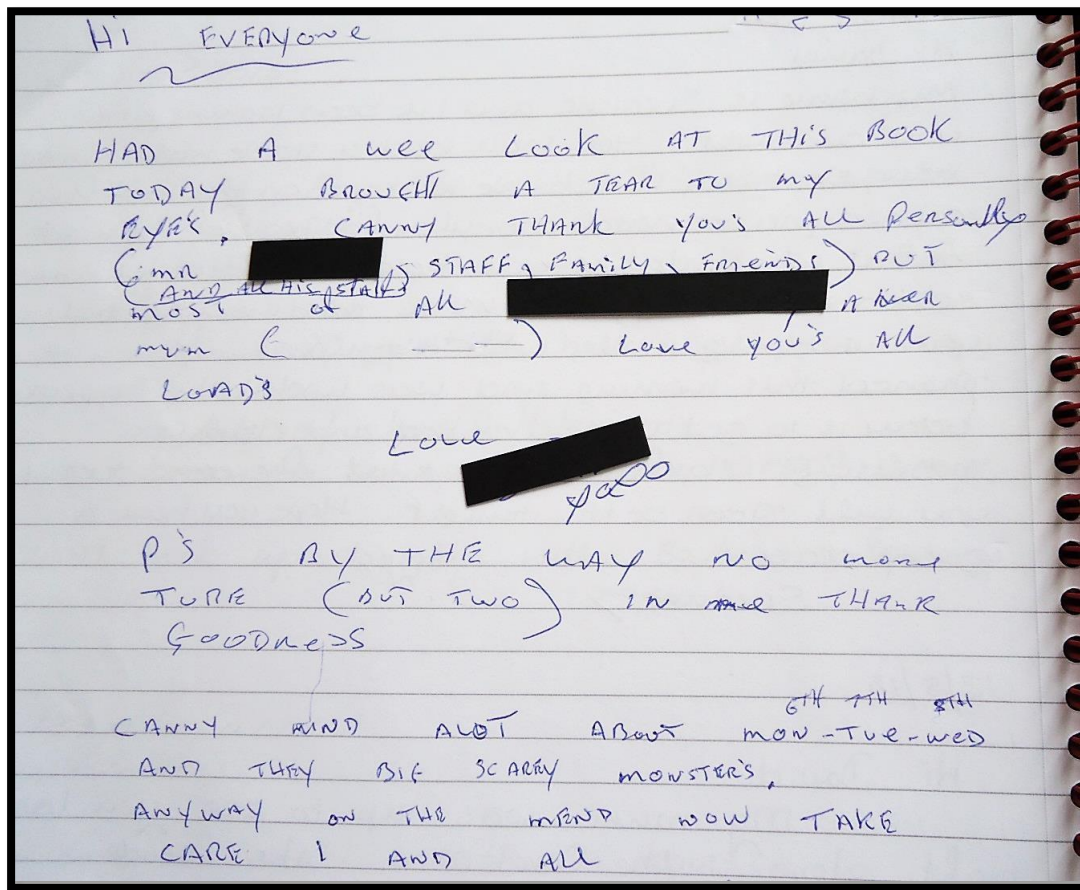 Hi EVERYONE
HAD A wee LOOK AT THiS BOOK
TODAY BROUGHT A TEAR TO my
EYE'S. CANNY THANK YOU'S ALL Personally
(mr STAFF, FAmily, FRiENDS) BUT
(AND ALL HiS STAFF)
mOST OF ALL
mum ( — — ) LOVE YOU'S ALL
LOAD'S
LOVE
P'S BY THE WAY NO MORE
TUBE (BUT TWO) IN me THANK
GOODNESS
6TH 7TH 8TH
CANNY MIND ALOT ABOUT MON-TUE-WED
AND THEY BIG SCAREY MONSTER'S.
ANYWAY ON THE MEND NOW TAKE
CARE 1 AND ALL